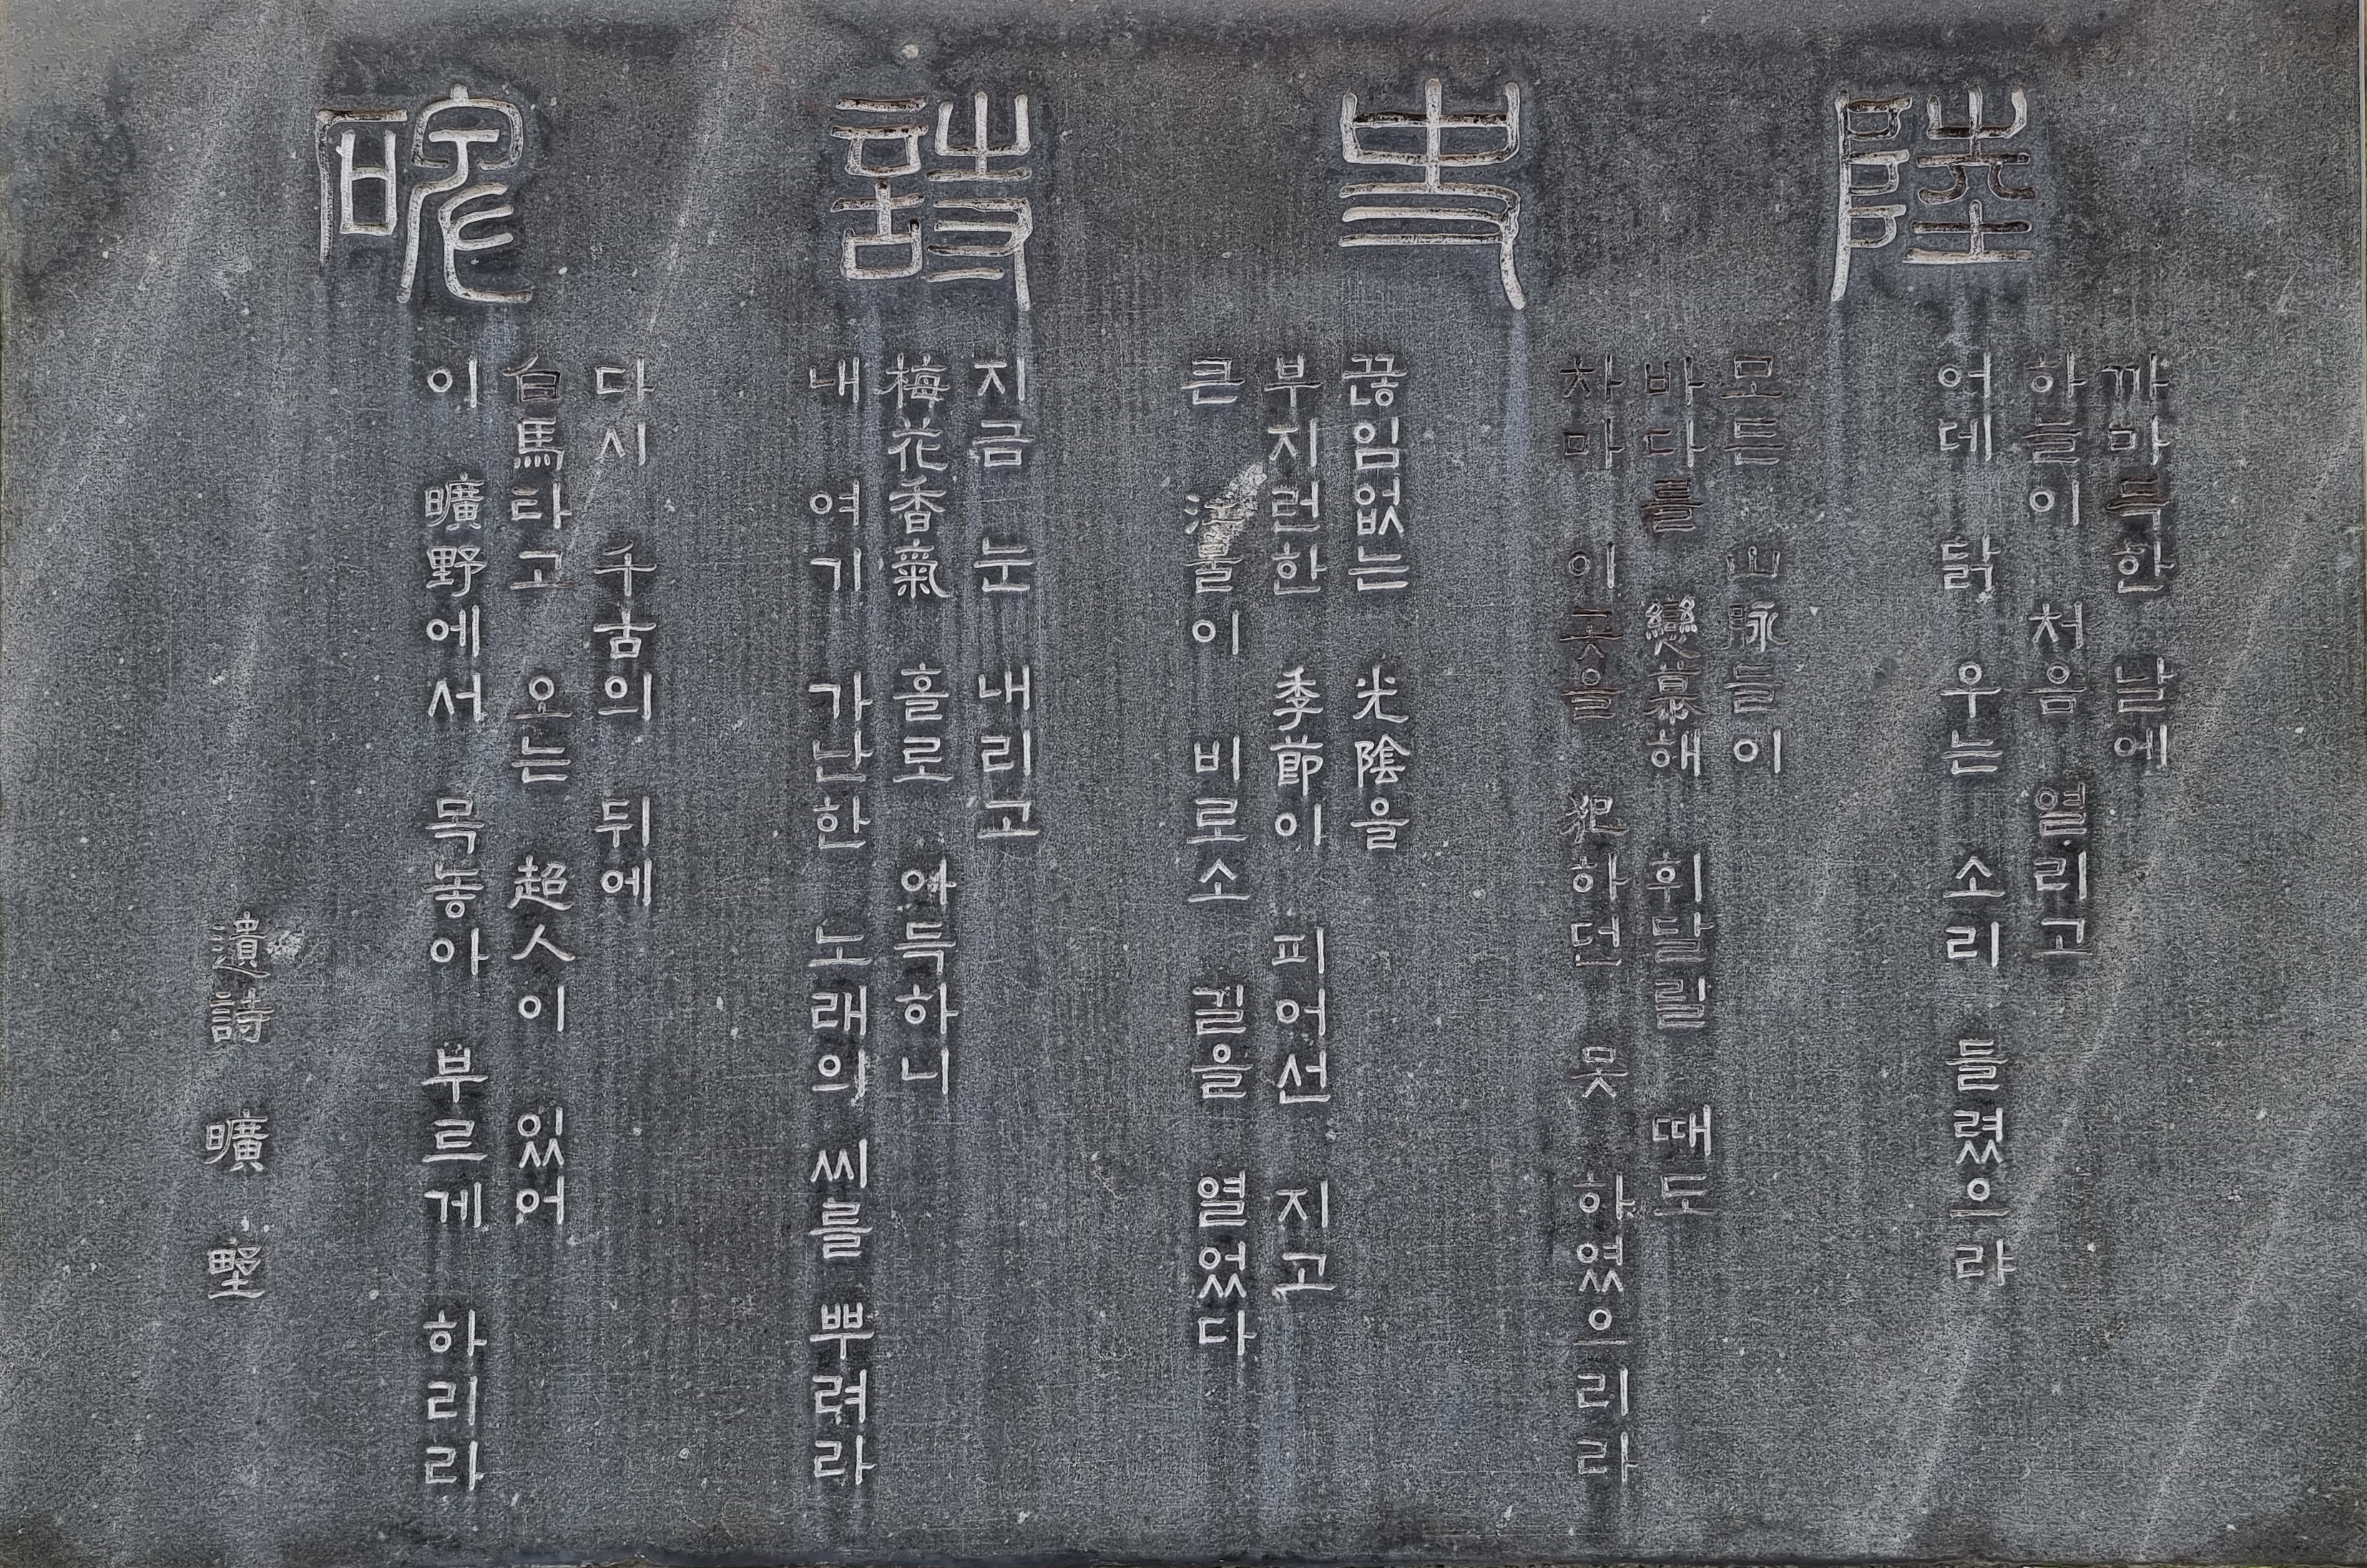 陸史詩碑
까마득한 날에
하늘이 처음 열리고
어데 닭 우는 소리 들렸으랴
모든 山脉들이
바다를 戀慕해 휘달릴 때도
차마 이곳을 犯하던 못 하였으리라
끊임없는 光陰을
부지런한 季節이 피어선 지고
큰 江물이 비로소 길을 열었다
지금 눈 내리고
梅花香氣 홀로 아득하니
내 여기 가난한 노래의 씨를 뿌려라
다시 千古의 뒤에
白馬타고 오는 超人이 있어
이 曠野에서 목놓아 부르게 하리라
遺詩 曠 野